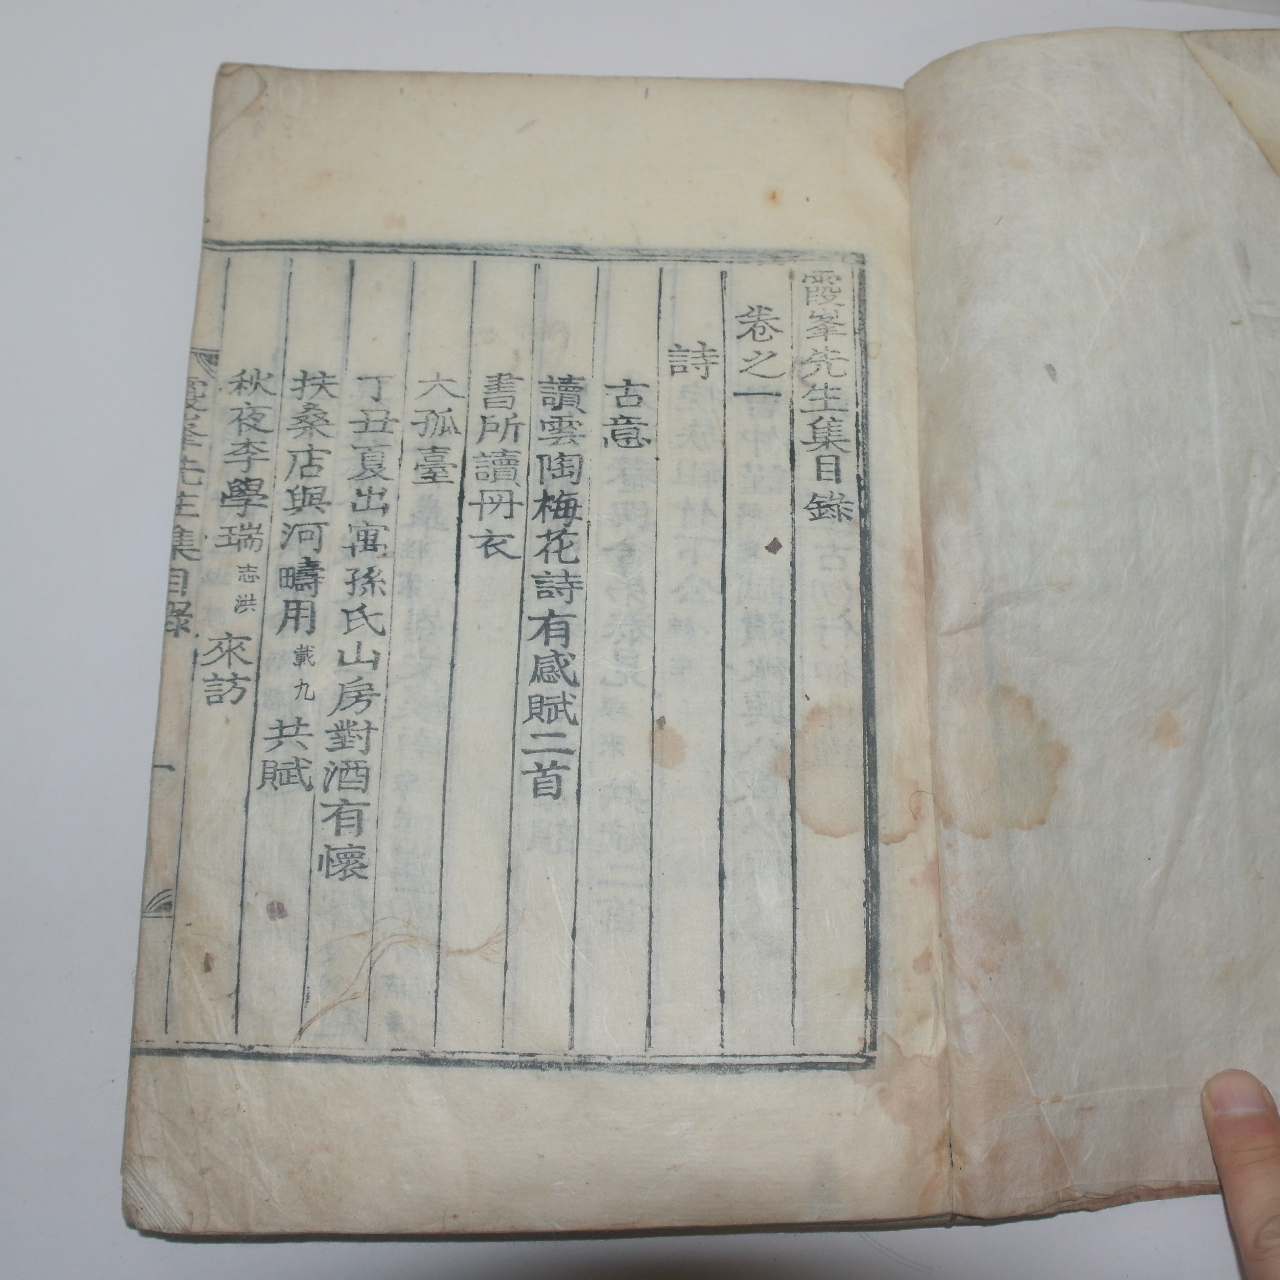 霞峯先生集目錄
卷之一
詩
古意
讀雲陶梅花詩有感賦二首
書所讀冊衣
大孤臺
丁丑夏出寓孫氏山房對酒有懷
扶桑店與河疇用載九共賦
秋夜李學瑞志洪來訪
霞峯先生集目錄
一